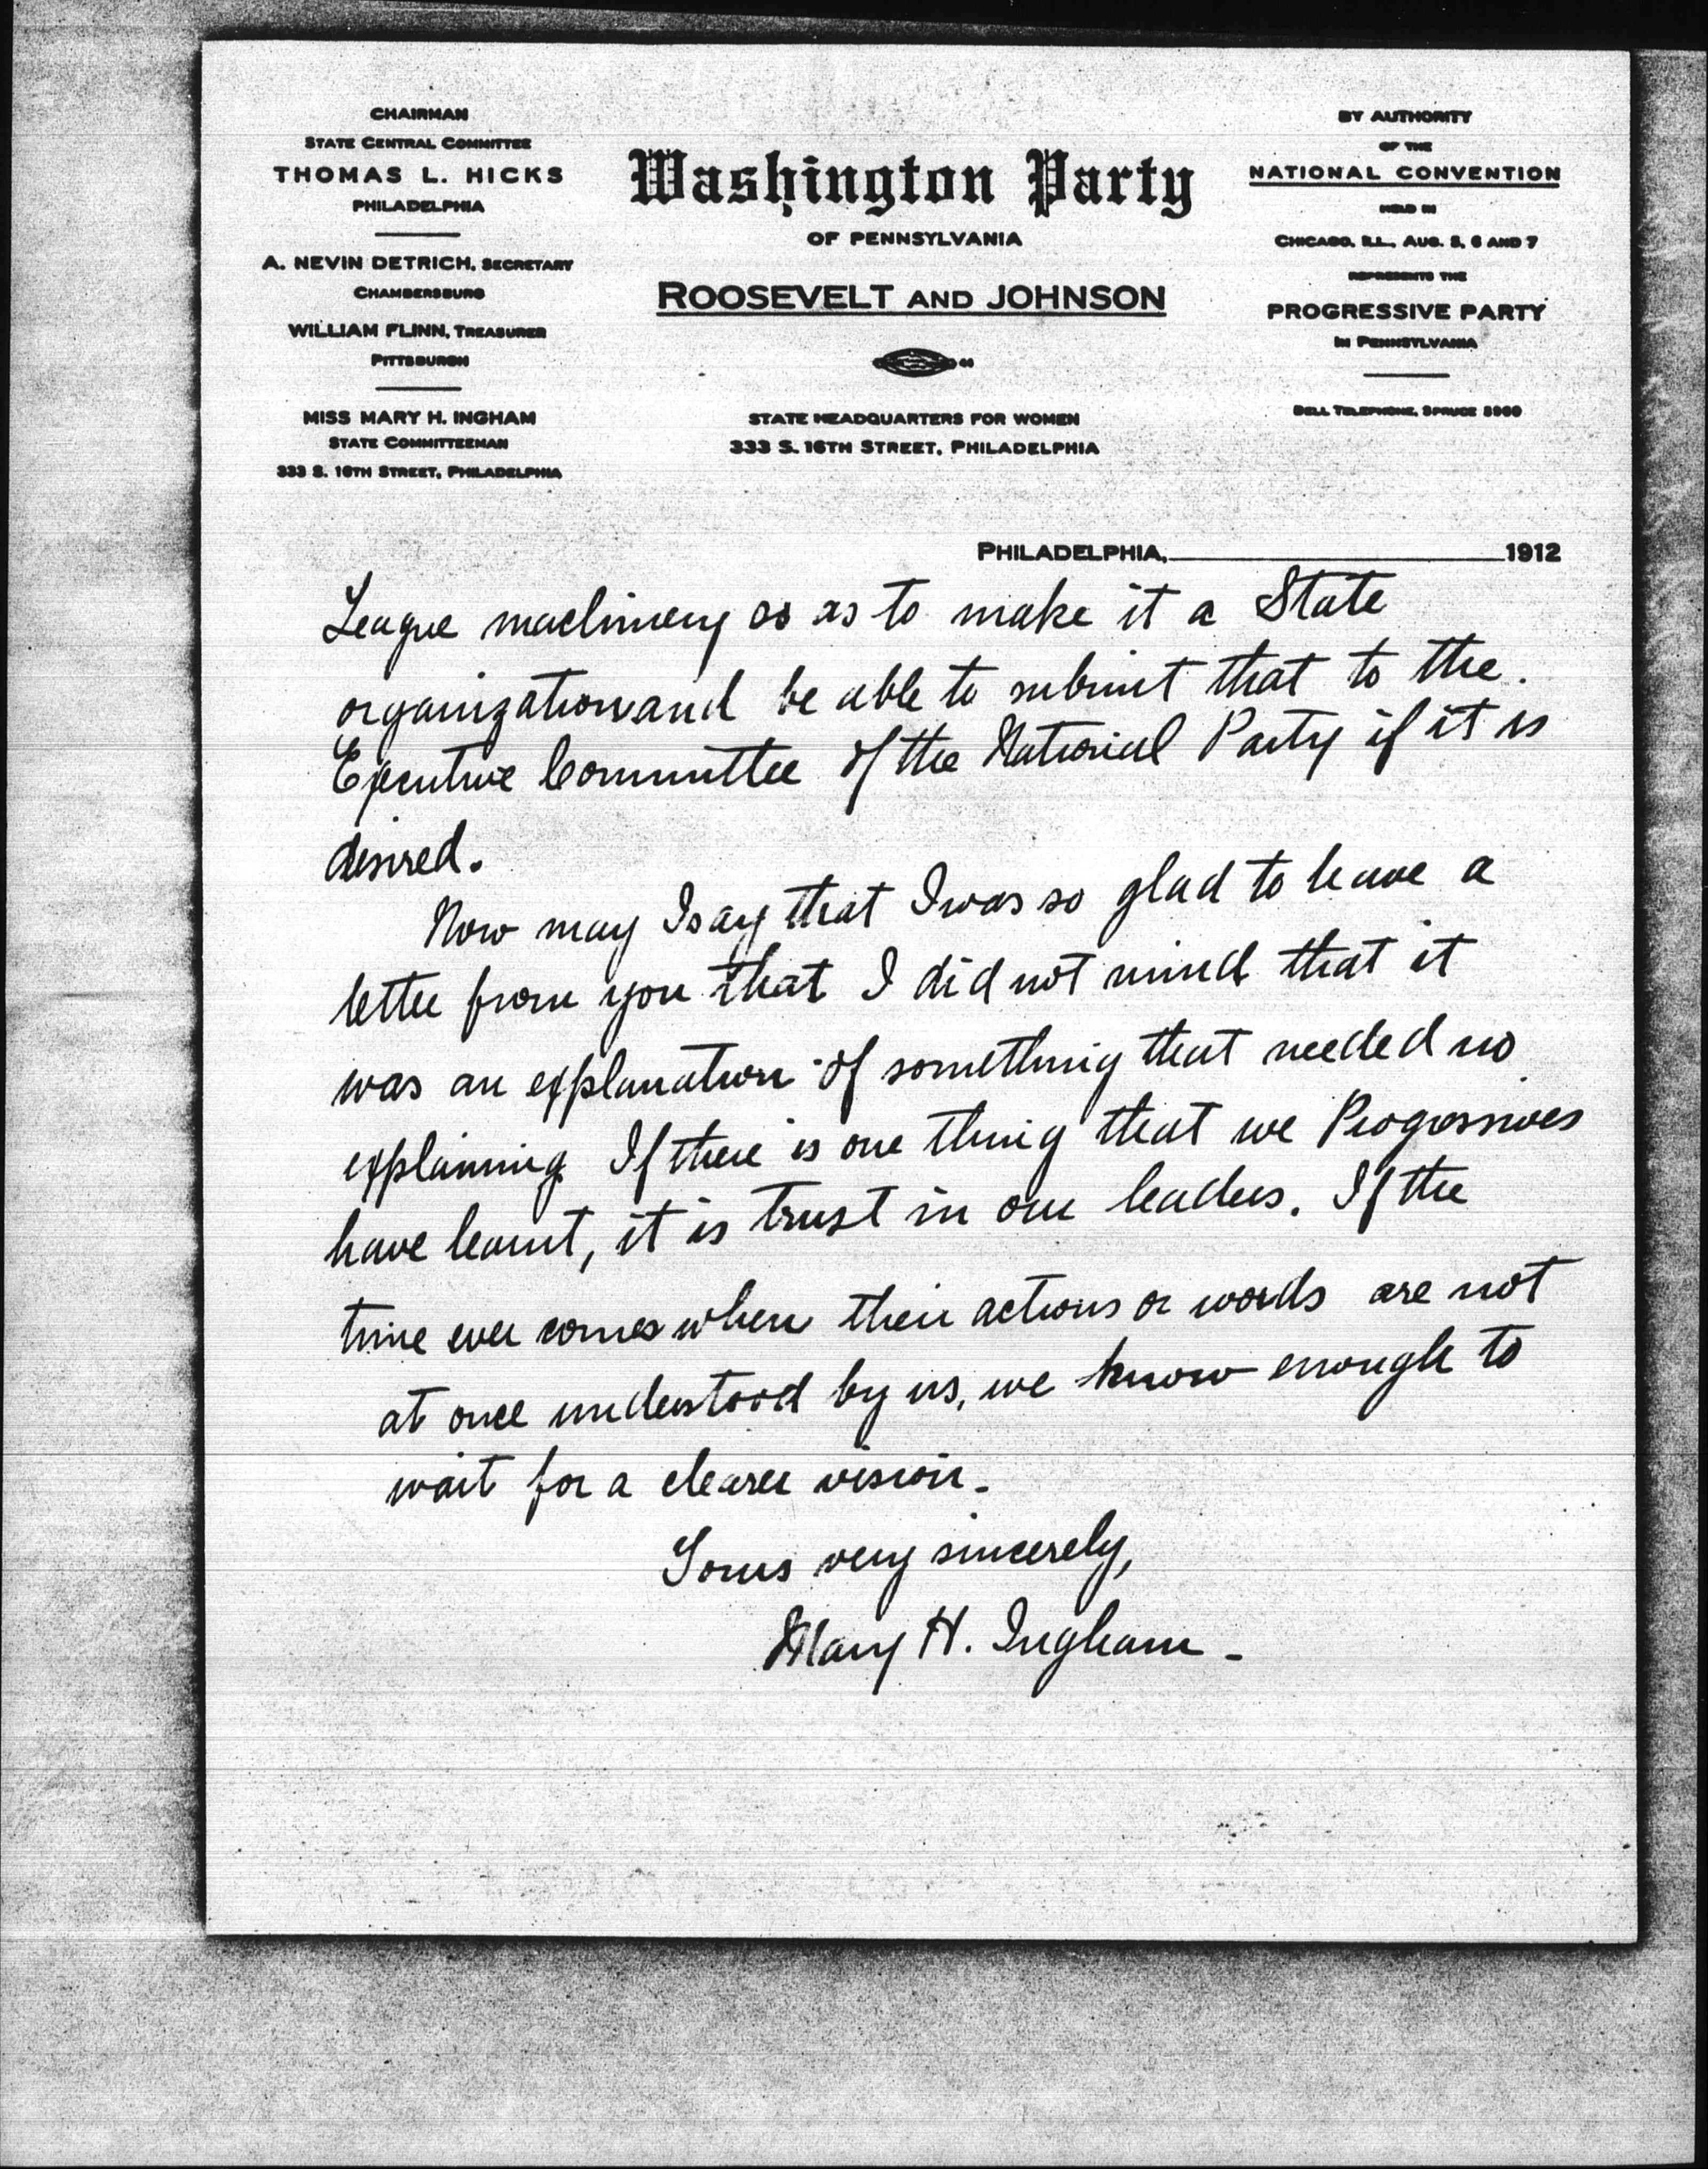 CHAIRMAN
STATE CENTRAL COMMITTEE
THOMAS L. HICKS
PHILADELPHIA
A. NEVIN DETRICH, SECRETARY
CHAMBERSBURG
WILLIAM FLINN, TREASURER
PITTSBURGH
MISS MARY H. INGHAM
STATE COMMITTEEMAN
333 S. 16TH STREET, PHILADELPHIA
Washington Party
OF PENNSYLVANIA
ROOSEVELT AND JOHNSON
STATE HEADQUARTERS FOR WOMEN
333 S. 16TH STREET, PHILADELPHIA
BY AUTHORITY
OF THE
NATIONAL CONVENTION
HELD IN
CHICAGO, ILL., AUG. 5, 6 AND 7
REPRESENTS THE
PROGRESSIVE PARTY
IN PENNSYLVANIA
BELL TELEPHONE, SPRUCE
PHILADELPHIA, 1912
League machinery so as to make it a State
organization and be able to submit that to the
Executive Committee of the National Party if it is
desired.
Now may I say that I was so glad to have a
letter from you that I did not mind that it
was an explanation of something that needed no
explaining. If there is one thing that we Progressives
have learnt, it is trust in our leaders. If the
time ever comes when their actions or words are not
at once understood by us, we know enough to
wait for a clearer vision.
Yours very sincerely,
Mary H. Ingham.